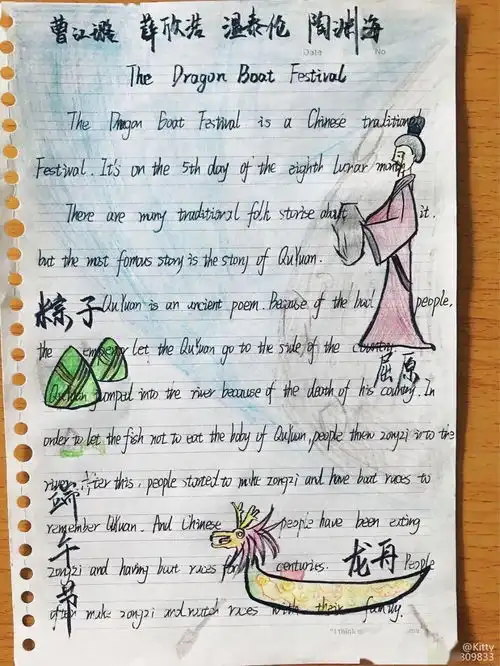 曹江漩 薛欣浩 温泰伦 陶渊海
Date No
The Dragon Boat Festival
The Dragon Boat Festival is a Chinese traditional
Festival. It's on the 5th day of the eighth lunar month
There are many traditional folk storise about it.
but the most fomous story is the story of QuYuan.
粽子
QuYuan is an uncient poem. Because of the bad people,
the emperor let the QuYuan go to the side of the country.
屈原
QuYuan jumped into the river because of the death of his country. In
order to let the fish not to eat the body of QuYuan, people threw zongzi into the
river. After this, people started to make zongzi and have boat races to
端午节
remember QuYuan. And Chinese people have been eating
zongzi and having boat races for centuries. People
龙舟
often make zongzi and watch races with their family.
"I think
@Kitty
309833